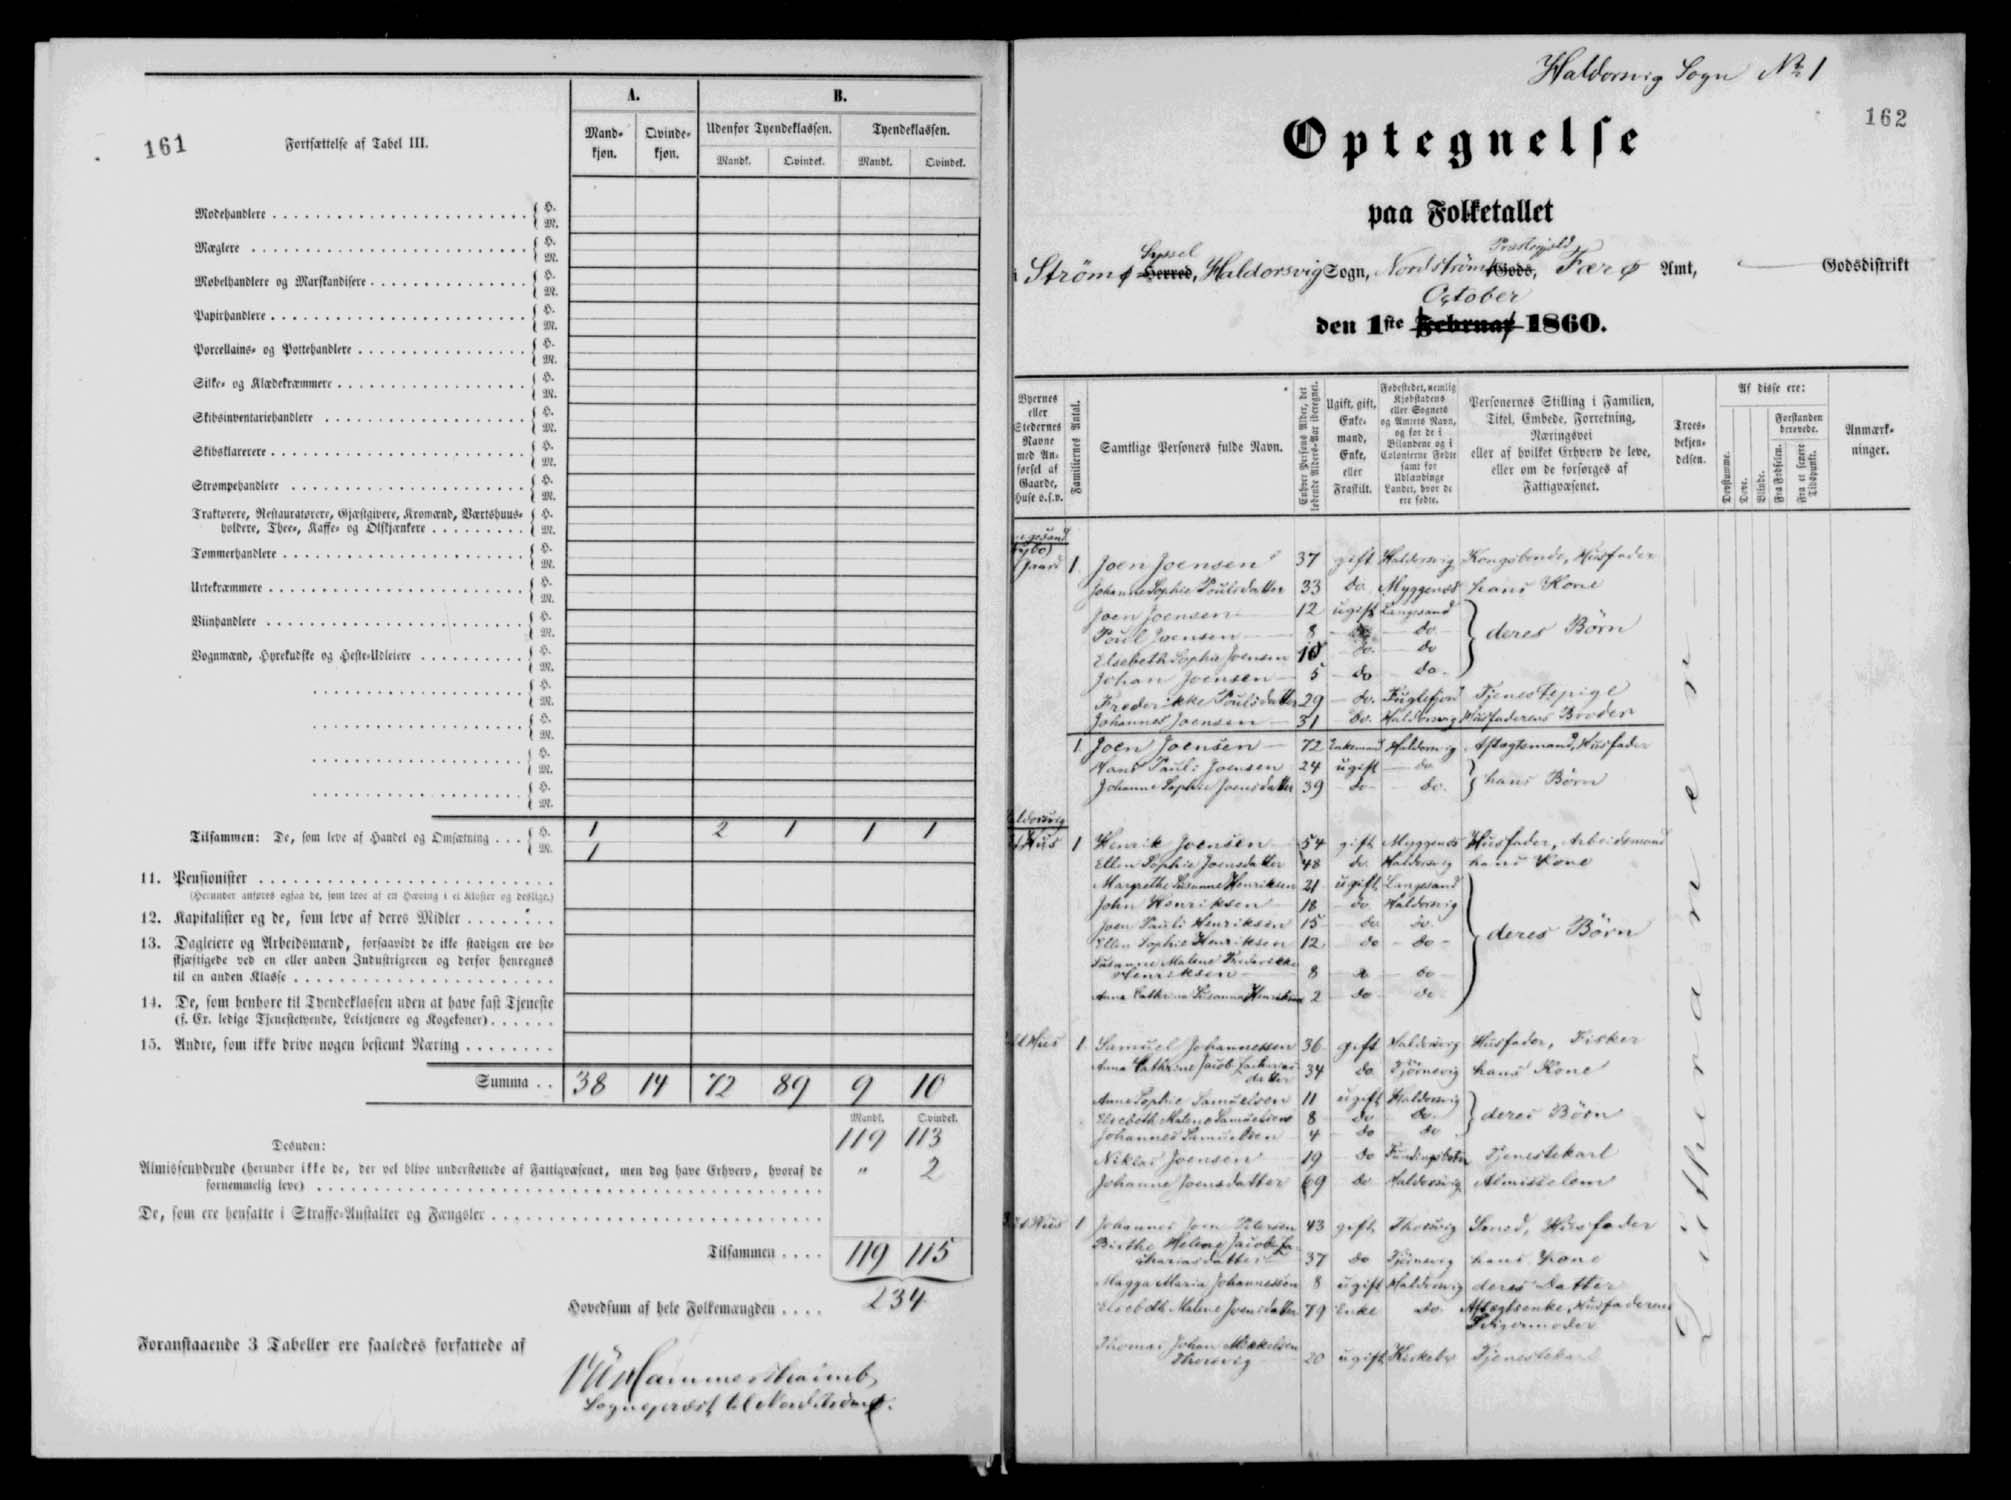 161
Fortsættelse af Tabel III.
A.
B.
Mandkjøn.
Qvindekjøn.
Udenfor Tyendeklassen.
Tyendeklassen.
Mandk.
Qvindek.
Mandk.
Qvindek.
Modehandlere { H. M.
Mæglere { H. M.
Møbelhandlere og Marskandisere { H. M.
Papirhandlere { H. M.
Porcellains- og Pottehandlere { H. M.
Silke- og Klædekræmmere { H. M.
Skibsinventariehandlere { H. M.
Skibsklarerere { H. M.
Strømpehandlere { H. M.
Traktører, Restauratører, Gjæstgivere, Kromænd, Værtshuusholdere, Thee-, Kaffe- og Ølskjænkere { H. M.
Tømmerhandlere { H. M.
Urtekræmmere { H. M.
Viinhandlere { H. M.
Vognmænd, Hyrekudske og Heste-Udleiere { H. M.
Tilsammen: De, som leve af Handel og Omsætning { H. 1 2 1 1 1
M. 1
11. Pensionister
(Herunder anføres ogsaa de, som leve af en Hæving i et Kloster og deslige.)
12. Kapitalister og de, som leve af deres Midler
13. Dagleiere og Arbeidsmænd, forsaavidt de ikke stadigen ere beskjæftigede ved en eller anden Industrigreen og derfor henregnes til en anden Klasse
14. De, som henhøre til Tyendeklassen uden at have fast Tjeneste
(f. Ex. ledige Tjenestetyende, Leietjenere og Kogekoner)
15. Andre, som ikke drive nogen bestemt Næring
Summa 38 14 72 89 9 10
Mandk. Qvindek.
119 113
Desuden:
Almissenydende (herunder ikke de, der vel blive understøttede af Fattigvæsenet, men dog have Erhverv, hvoraf de fornemmelig leve) " 2
De, som ere hensatte i Straffe-Anstalter og Fængsler
Tilsammen 119 115
Hovedsum af hele Folkemængden 234
Foranstaaende 3 Tabeller ere saaledes forfattede af
Hammershaimb
Sogneprest til Nordströmø.
Haldorsvig Sogn No 1
162
Optegnelse
paa Folketallet
i Strömø Herred, Syssel Haldorsvig Sogn, Nordström Gods, Præstegjeld Færø Amt, Godsdistrikt
October
den 1ste Februar 1860.
Byernes eller Stedernes Navne med Anførsel af Gaarde, Huse o.s.v.
Familiernes Antal.
Samtlige Personers fulde Navn.
Enhver Persons Alder, det løbende Alders-Aar iberegnet.
Ugift, gift, Enkemand, Enke, eller Fraskilt.
Fødestedet, nemlig Kjøbstadens eller Sognets og Amtets Navn, og for de i Bilandene og i Colonierne Fødte samt for Udlændinge Landet, hvor de ere fødte.
Personernes Stilling i Familien, Titel, Embede, Forretning, Næringsvei eller af hvilket Erhverv de leve, eller om de forsørges af Fattigvæsenet.
Troesbekjendelsen.
Af disse ere:
Døvstumme.
Døve.
Blinde.
Forstanden berøvede.
Fra Fødselen.
Fra et senere Tidspunkt.
Anmærkninger.
1 Joen Joensen 37 gift Haldorsvig Kongsbonde, Husfader
Johanne Sophie Poulsdatter 33 do. Myggenæs hans Kone
Joen Joensen 12 ugift Langesand
Poul Joensen 8 do do } deres Børn
Elsebeth Sophie Joensen 10 do. do
Johan Joensen 5 do do.
Frederikke Poulsdatter 29 do. Fuglefjord Tjenestepige
Johannes Joensen 31 do. Haldorsvig Husfaderens Broder
1. Joen Joensen 72 Enkemand Haldorsvig Aftægtsmand, Husfader
Hans Pauli Joensen 24 ugift do. } hans Børn
Johanne Sophie Joensdatter 39 do do.
Hus 1 Henrik Joensen 54 gift Myggenæs Husfader, Arbeidsmand
Ellen Sophie Joensdatter 48 do Haldorsvig hans Kone
Margrethe Susanne Henriksen 21 ugift Langesand
John Henriksen 18 do Haldorsvig
Joen Pauli Henriksen 15 do do. } deres Børn
Ellen Sophie Henriksen 12 do do
Susanne Malene Frederikke Henriksen 8 do do
Anna Cathrina Susanna Henriksen 2 do do
Hus 1. Samuel Johannessen 36 gift Haldorsvig Husfader, Fisker
Anna Cathrine Jacob Zachariasdatter 34 do Tjörnevig hans Kone
Anne Sophie Samuelsen 11 ugift Haldorsvig
Elsebeth Malene Samuelsen 8 do do } deres Børn
Johannes Samuelsen 4 do do
Niklas Joensen 19 do Fundingsbotn Tjenestekarl
Johanne Joensdatter 69 do Haldorsvig Almisselem
Hus 1 Johannes Joen Petersen 43 gift Thorsvig Smed, Husfader
Birthe Helene Jacob Zachariasdatter 37 do Tjörnevig hans Kone
Magga Maria Johannessen 8 ugift Haldorsvig deres Datter
Elsebeth Malene Joensdatter 79 Enke do Aftægtsenke, Husfaderens Svigermoder
Thomas Johan Mikkelsen Thorsvig 20 ugift Kirkebø Tjenestekarl
Lutheranere